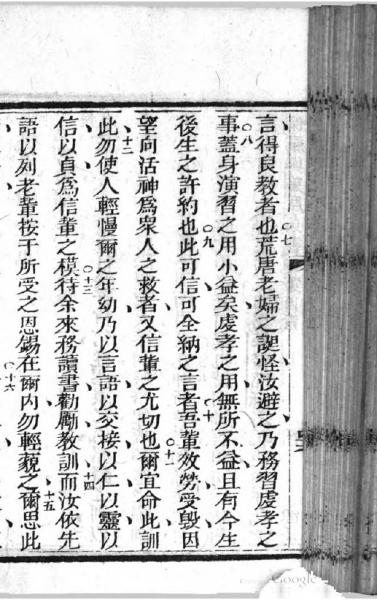 言得良教者也○七荒唐老婦之誕怪汝避之乃務習虔孝之
事○八蓋身演習之用小益矣虔孝之用無所不益且有今生
後生之許約也○九此可信可全納之言者○十吾輩效勞受毀因
望向活神為衆人之救者又信輩之尤切也○十一爾宜命此訓
此○十二勿使人輕慢爾之年幼乃以言語以交接以仁以靈以
信以貞為信輩之模○十三待余來務讀書勸勵教訓○十四而汝依先
語以列老輩按于所受之恩錫在爾內勿輕藐之○十五爾思此
○十六
Google